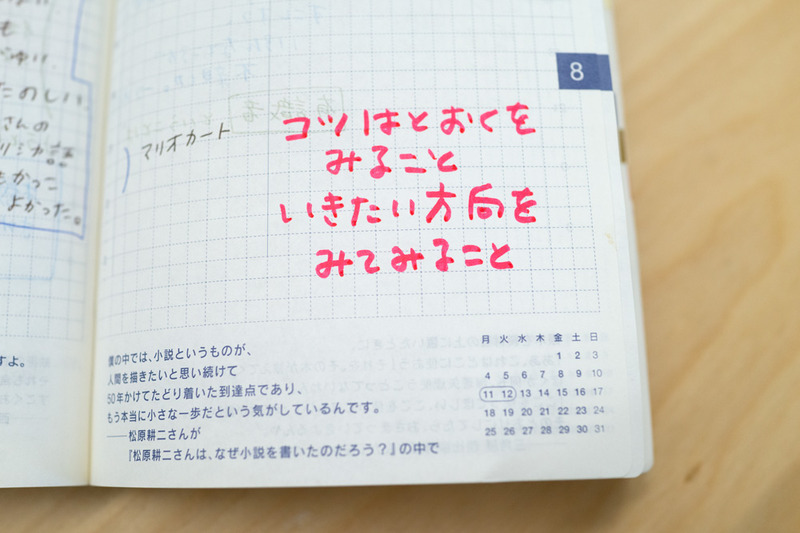 も
たのしい
さんの
もかっこ
よかった。
すよ。
8
マリオカート
コツはとおくを
みること
いきたい方向を
みてみること
僕の中では、小説というものが、
人間を描きたいと思い続けて
50年かけてたどり着いた到達点であり、
もう本当に小さな一歩だという気がしているんです。
――松原耕二さんが
『松原耕二さんは、なぜ小説を書いたのだろう?』の中で
月 火 水 木 金 土 日
1 2 3
4 5 6 7 8 9 10
11 12 13 14 15 16 17
18 19 20 21 22 23 24
25 26 27 28 29 30 31